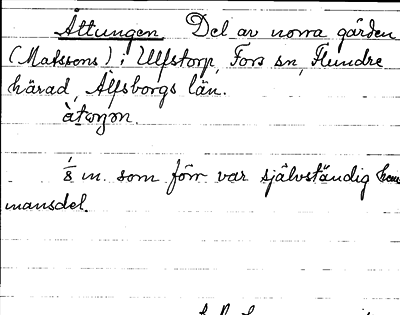 Åttungen Del av norra gården
(Matssons) i Ulfstorp, Fors sn, Flundre
härad, Älfsborgs län.
àtoŋən.
1/8 m. som förr var självständig hem-
mansdel.